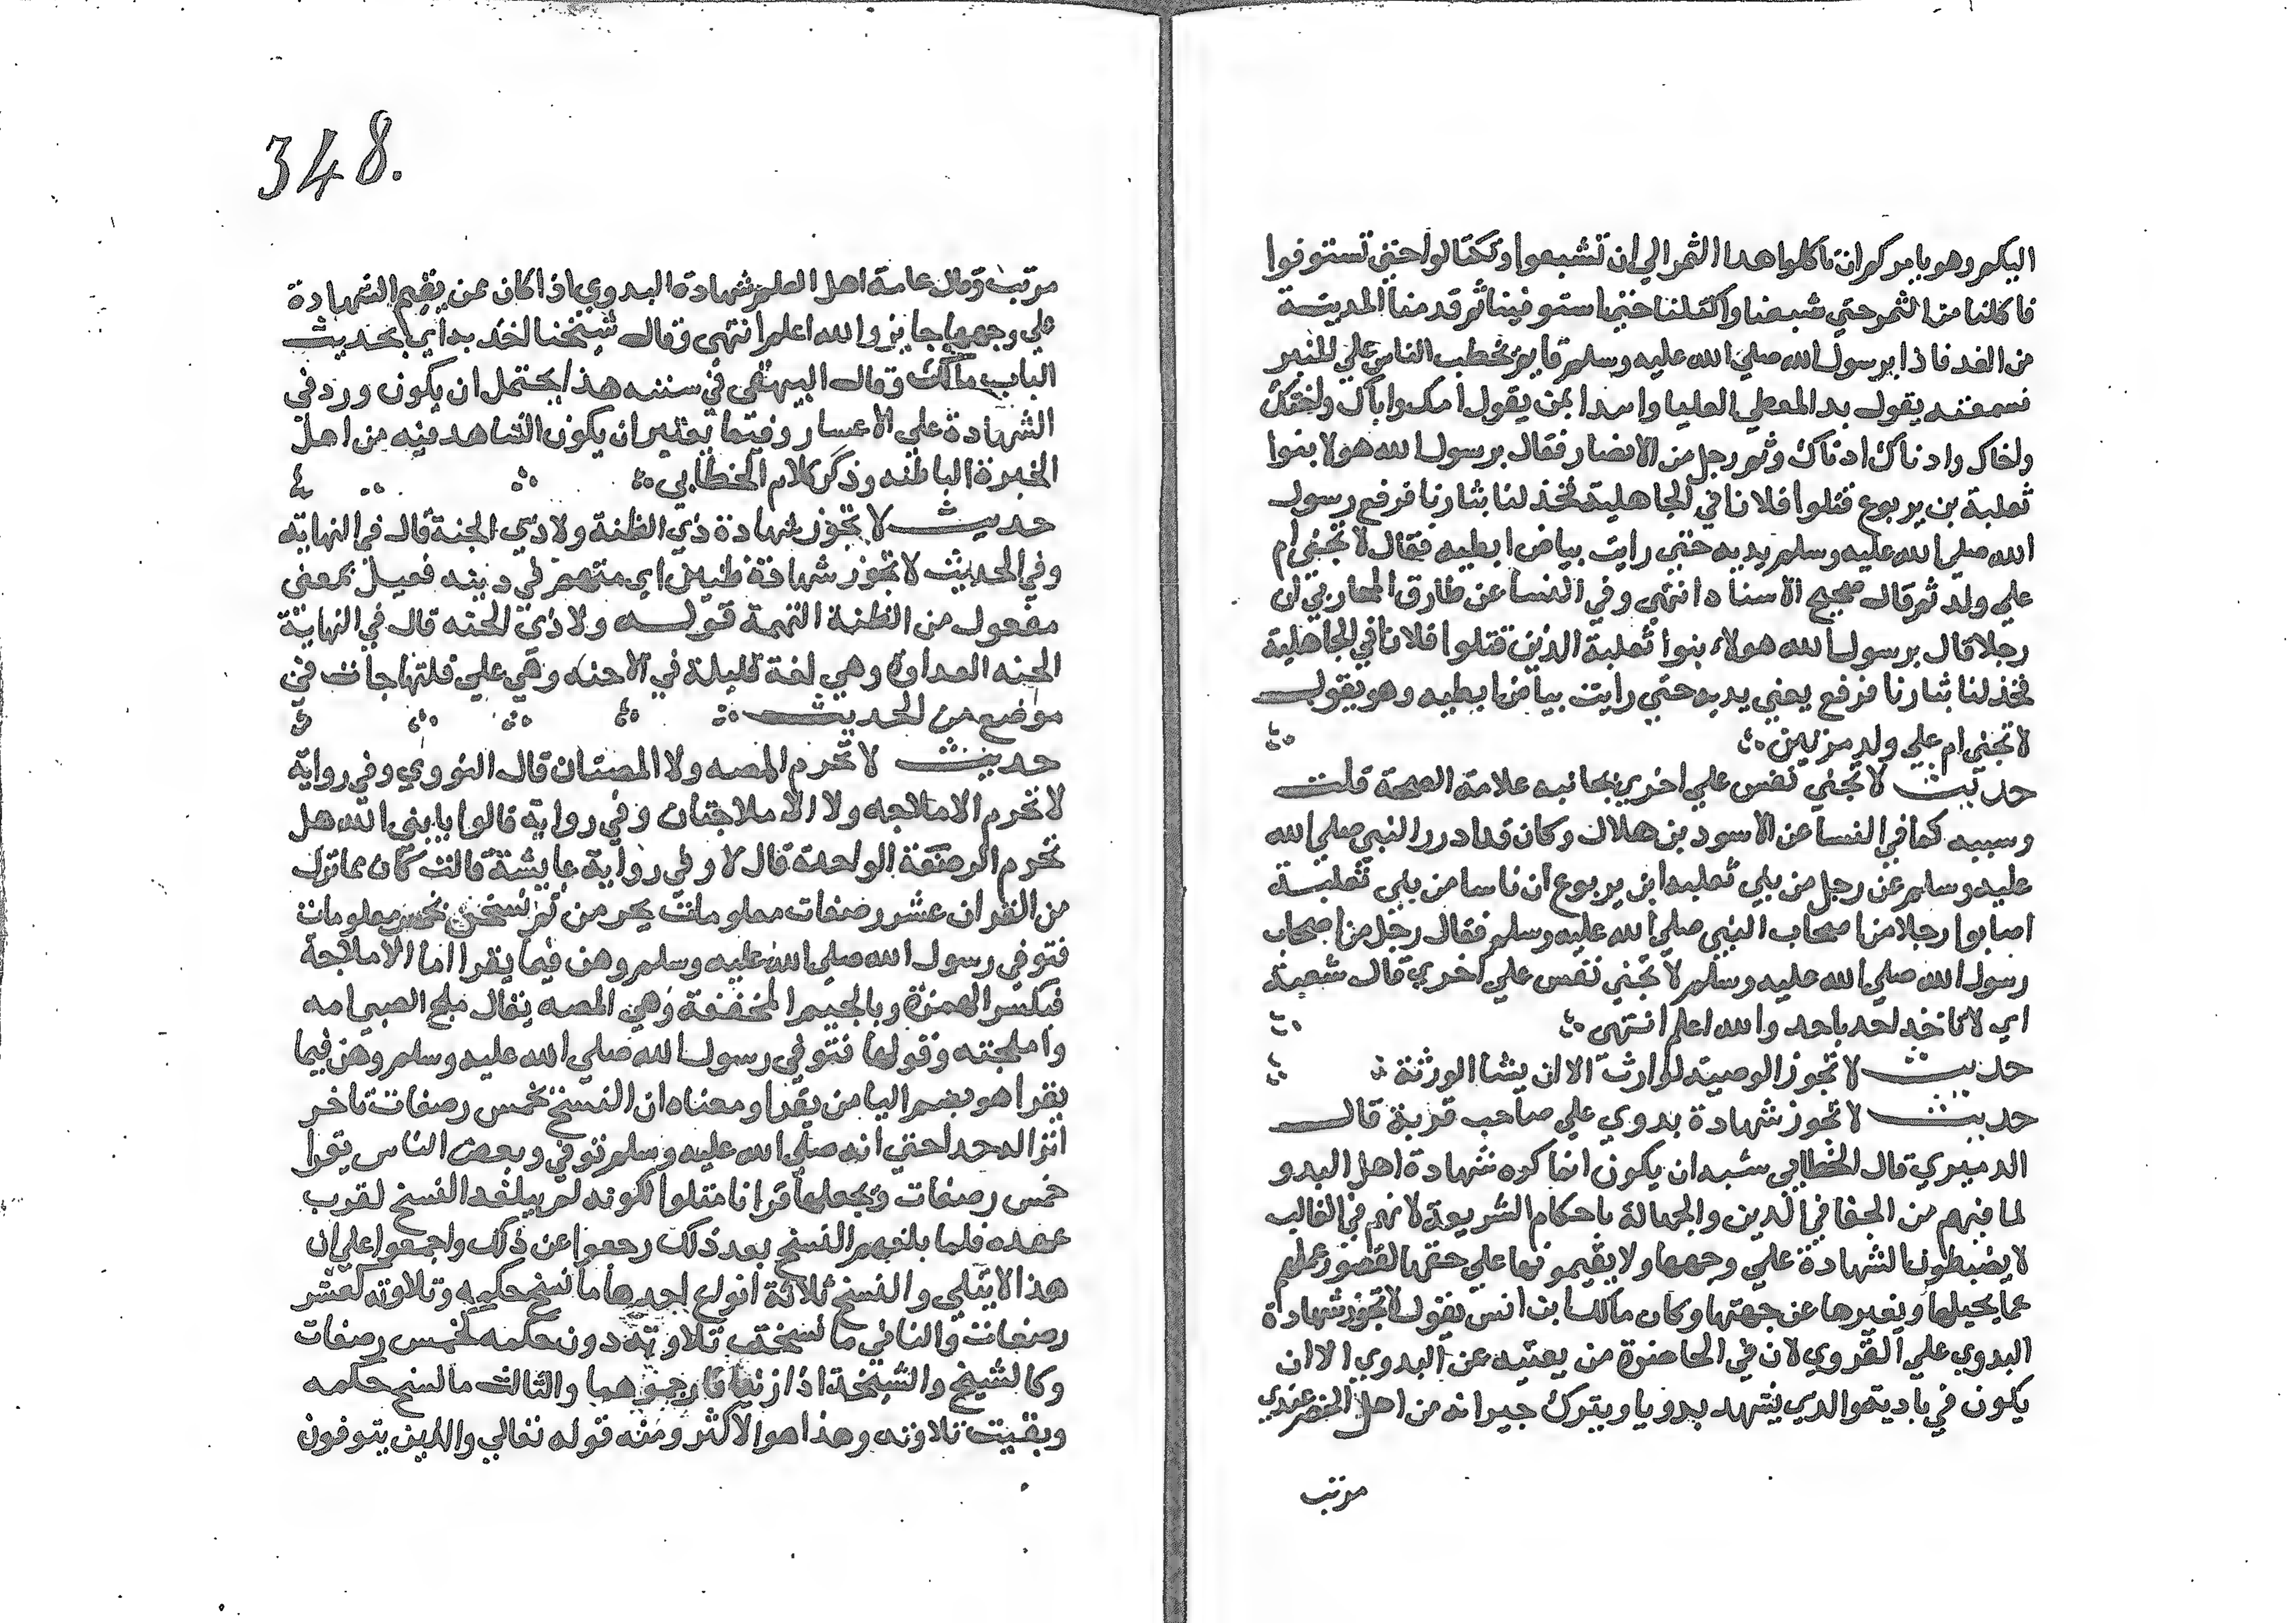 اليكم وهو يامركم ان تاكلوا هدا الثمر الي ان تشبعوا وتكتالوا حتي تستوفوا
فاكلنا من الثمر حتي شبعنا واكتلنا حتي استوفينا ثم قدمنا المدينة
من الغد فاذا برسول الله صلي الله عليه وسلم قايم يخطب الناس علي المنبر
فسمعته يقول يد المعطي العليا وابدا بمن يقول امك واباك واختك
واخاك وادناك ادناك وثم رجل من الانصار فقال يرسول الله هولا بنوا
ثعلبة بن يربوع قتلوا فلانا في الجاهلية فخذ لنا بثارنا فرفع رسول
الله صلي الله عليه وسلم يديه حتي رايت بياض ابطيه فقال لا تجني ام
علي ولد ثم قال صحيح الاسناد انتهي وفي النسا عن طارق المحاربي ان
رجلا قال يرسول الله هولاء بنوا ثعلبة الذين قتلوا فلانا في الجاهلية
فخذ لنا بثارنا فرفع يعني يديه حتي رايت بياض ابطيه وهو يقول
لا تجني ام علي ولد مرتين
حديث لا تجني نفس علي اخري بجانبه علامة الصحة قلت
وسببه كما في النسا عن الاسود بن هلال وكان قد ادرك النبي صلي الله
عليه وسلم عن رجل من بني ثعلبه ابن يربوع ان ناسا من بني ثعلبة
اصابوا رجلا من اصحاب النبي صلي الله عليه وسلم فقال رجل من اصحاب
رسول الله صلي الله عليه وسلم لا تجني نفس علي اخري قال شعبة
اي لا تاخد احد باحد والله اعلم انتهى
حديث لا تجوز الوصية لوارث الا ان يشا الورثة
حديث لا تجوز شهادة بدوي علي صاحب قرية قال
الدميري قال الخطابي يشبه ان يكون انما كره شهادة اهل البدو
لما فيهم من الجفا في الدين والجهالة باحكام الشريعة لانهم في الغالب
لا يضبطون الشهادة علي وجهها ولا يقيمونها علي حقها لقصور علمهم
عما يحيلها ويغيرها عن جهتها وكان مالك بن انس يقول لا تجوز شهادة
البدوي علي القروي لان في الحاضرة من يغنيه عن البدوي الا ان
يكون في بادية والدي يشهد بدويا ويترك جيرانه من اهل الحضر عندي
مرتب
348.
مرتب وقال عامة اهل العلم شهادة البدوي اذا كان ممن يقيم الشهادة
علي وجهها جايز والله اعلم انتهى وقال شيخنا اخد بداي بحديث
الباب مالك وقال البيهقي في سننه هذا يحتمل ان يكون ورد في
الشهادة علي الاعسار وفيما تعتبر ان يكون الشاهد فيه من اهل
الخبرة الباطنه وذكر كلام الخطابي
حديث لا تجوز شهادة ذي الظنة ولا ذي الحنة قال في النهاية
وفي الحديث لا تجوز شهادة ظنين اي متهم في دينه فعيل بمعنى
مفعول من الظنة التهمة قوله ولا ذي الحنه قال في النهاية
الحنه العداوة وهي لغة قليلة في الاحنه وهي علي قلتها جات في
موضع من الحديث
حديث لا تحرم المصه ولا المصتان قال النووي وفي رواية
لا تحرم الاملاجه ولا الاملاجتان وفي رواية قالوا يا نبي الله هل
تحرم الرضعة الواحدة قال لا وفي رواية عايشة قالت كان مما نزل
من القران عشر رضعات معلومات يحرمن ثم نسخن بخمس معلومات
فتوفي رسول الله صلي الله عليه وسلم وهن فيما يقرا اما الاملاجة
فبكسر الهمزة وبالجيم المخففة وهي المصه يقال ملج الصبي امه
واملجته وقولها فتوفي رسول الله صلي الله عليه وسلم وهن فيما
يقرا هو بضم اليا من يقرا ومعناه ان النسخ بخمس رضعات تاخر
انزاله جدا حتي انه صلي الله عليه وسلم توفي وبعض الناس يقرا
خمس رضعات ويجعلها قرانا متلوا لكونه لم يبلغه النسخ لقرب
عهده فلما بلغهم النسخ بعد ذلك رجعوا عن ذلك واجمعوا علي ان
هذا لا يتلي والنسخ ثلاثة انواع احدها ما نسخ حكمه وتلاوته كعشر
رضعات والثاني ما نسخت تلاوته دون حكمه كخمس رضعات
وكالشيخ والشيخة اذا زنيا فارجموهما والثالث ما نسخ حكمه
وبقيت تلاوته وهذا هو الاكثر ومنه قوله تعالي والذين يتوفون